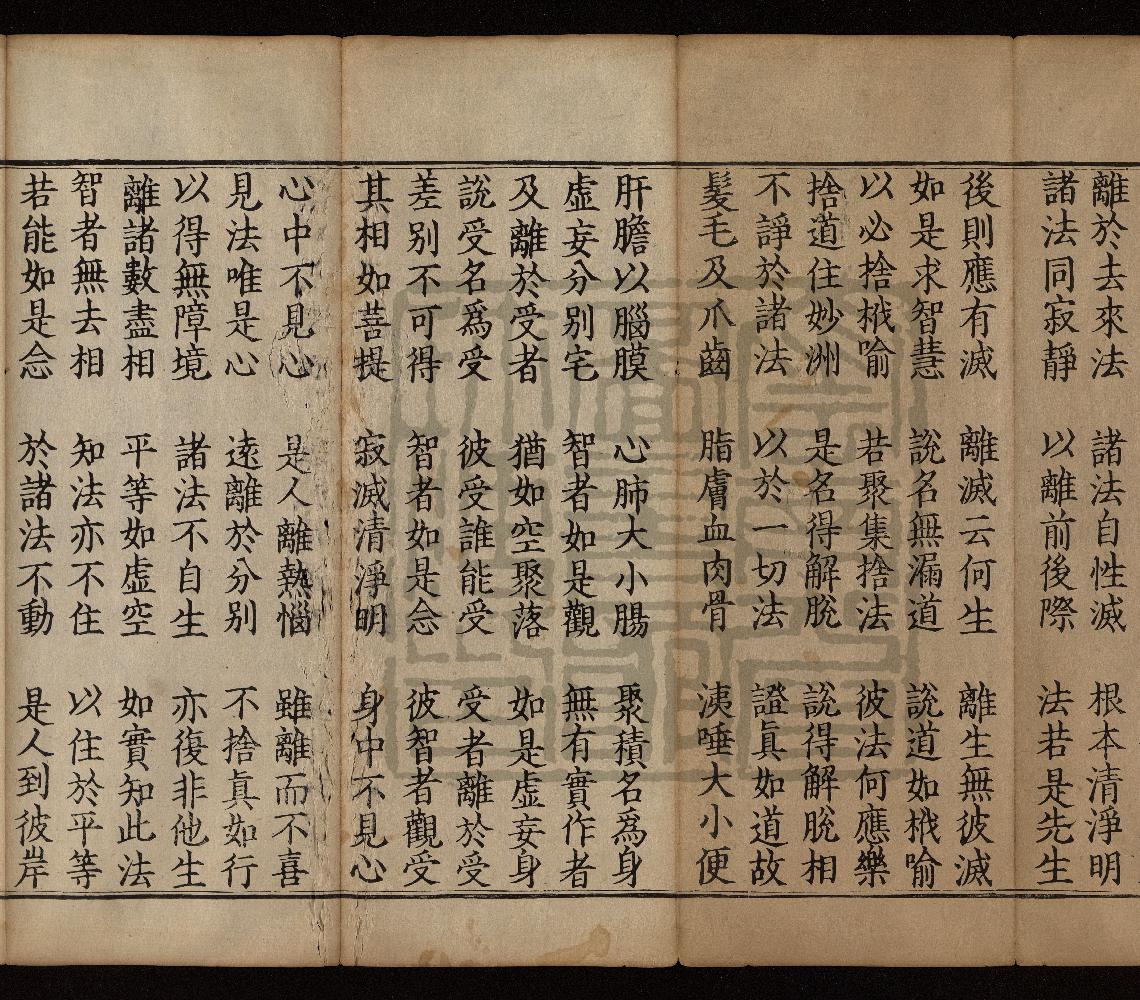 離於去來法　諸法自性滅　根本清淨明
諸法同寂靜　以離前後際　法若是先生
後則應有滅　離滅云何生　離生無彼滅
如是求智慧　說名無漏道　說道如栰喻
以必捨栰喻　若聚集捨法　彼法何應樂
捨道住妙洲　是名得解脫　說得解脫相
不諍於諸法　以於一切法　證眞如道故
髮毛及爪齒　脂膚血肉骨　洟唾大小便
肝膽以腦膜　心肺大小腸　聚積名爲身
虛妄分別宅　智者如是觀　無有實作者
及離於受者　猶如空聚落　如是虛妄身
說受名爲受　彼受誰能受　受者離於受
差別不可得　智者如是念　彼智者觀受
其相如菩提　寂滅清淨明　身中不見心
心中不見心　是人離熱惱　雖離而不喜
見法唯是心　遠離於分別　不捨眞如行
以得無障境　諸法不自生　亦復非他生
離諸數盡相　平等如虛空　如實知此法
智者無去相　知法亦不住　以住於平等
若能如是念　於諸法不動　是人到彼岸